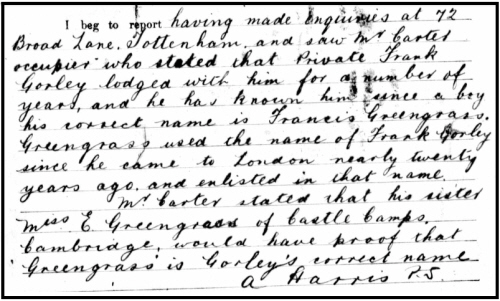 I beg to report having made Enquiries at 72
Broad Lane. Tottenham. and saw Mr Carter
occupier who stated that Private Frank
Gorley lodged with him for a number of
years, and he has known him since a boy
his correct name is Francis Greengrass.
Greengrass used the name of Frank Gorley
since he came to London nearly twenty
years ago. and enlisted in that name.
Mr Carter stated that his sister
Miss E. Greengrass of Castle Camps.
Cambridge, would have proof that
'Greengrass' is Gorley's correct name
A Harris P.S.